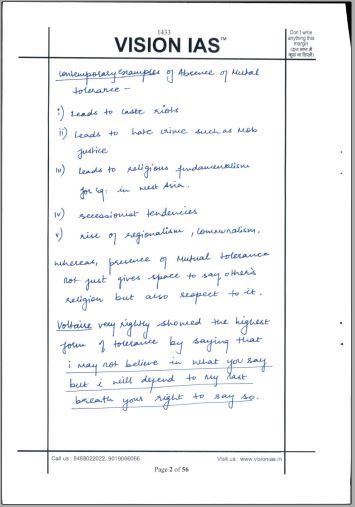 1433
VISION IAS™
Don't write
anything this
margin
Contemporary Examples of Absence of Mutal
tolerance –
i) Leads to caste riots
ii) Leads to hate crime such as Mob
Justice
iii) leads to religious fundamentalism
for eg: in West Asia.
iv) secessionist tendencies
v) rise of regionalism, communalism.
Whereas, presence of Mutual tolerance
not just gives space to say other's
religion but also respect to it.
Voltaire very rightly showed the highest
form of tolerance by saying that
i may not believe in what you say
but i will defend to my last
breath your right to say so.
Call us : 8468022022, 9019066066
Visit us : www.visionias.in
Page 2 of 56